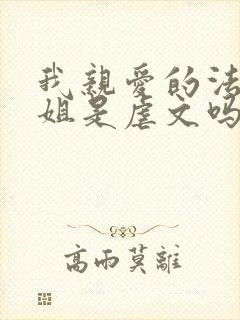 我親愛的法
姐是虐文吗
高雨莫離